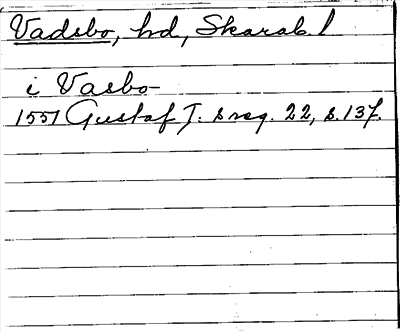 Vadsbo, hd, Skarab. l
i Vasbo
1551 Gustaf I. s reg. 22, s. 137.